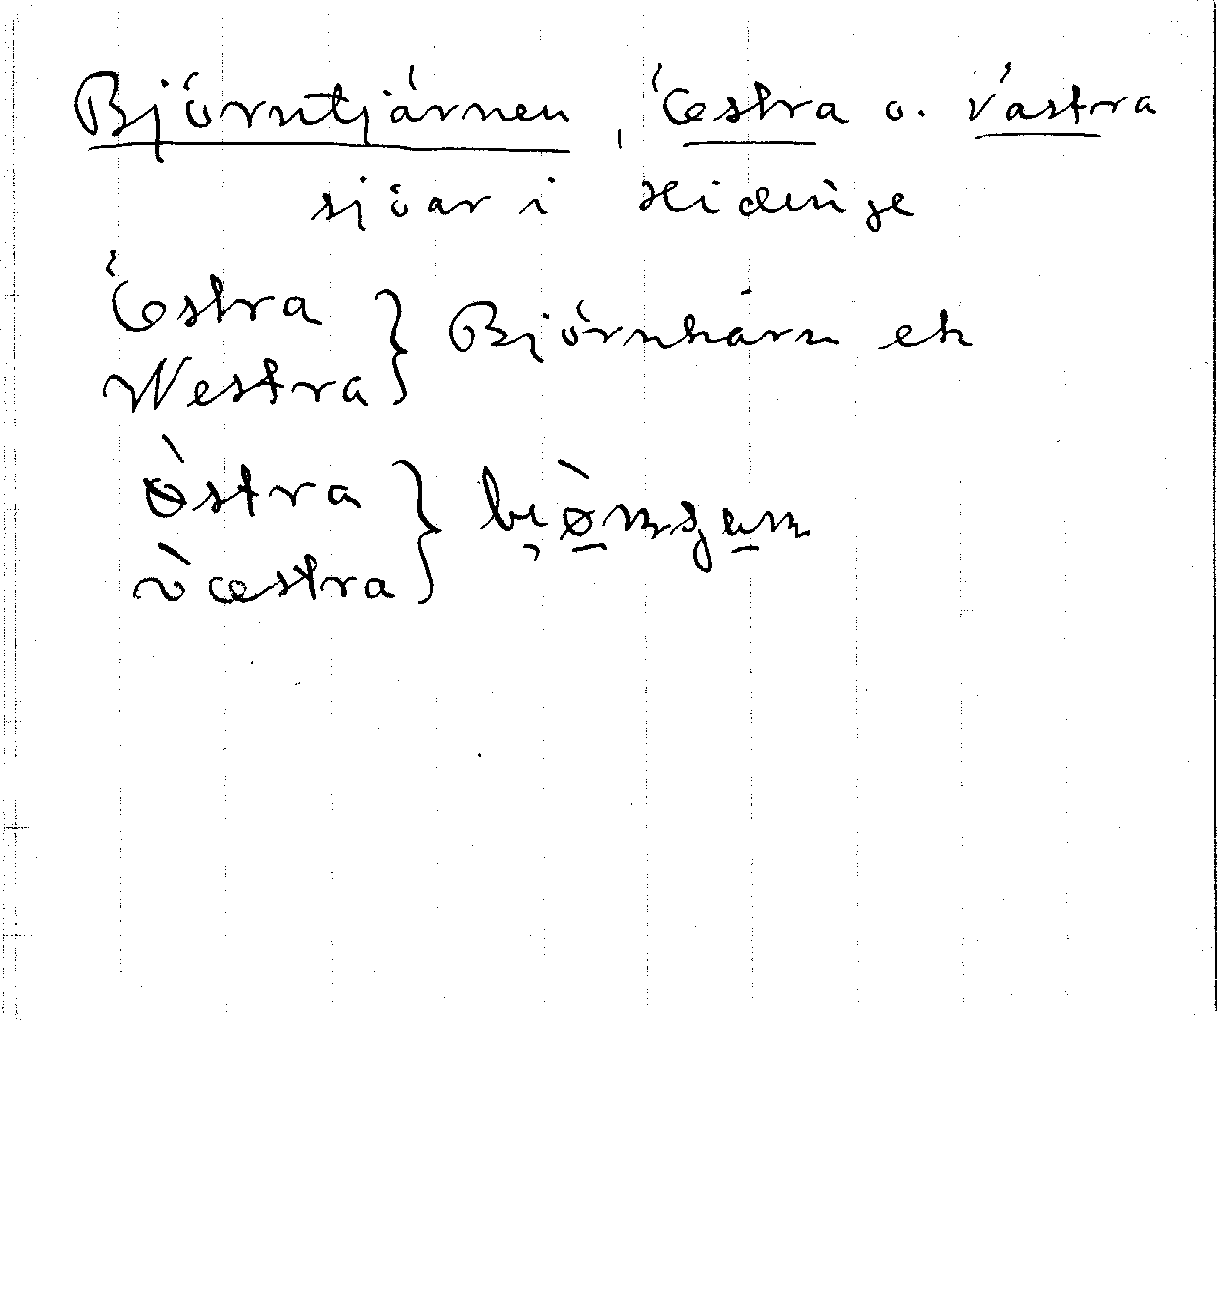 Björntjärnen, Östra o. Västra
sjöar i Hidinge
Östra } Björnkärn ek
Westra
östra
västra